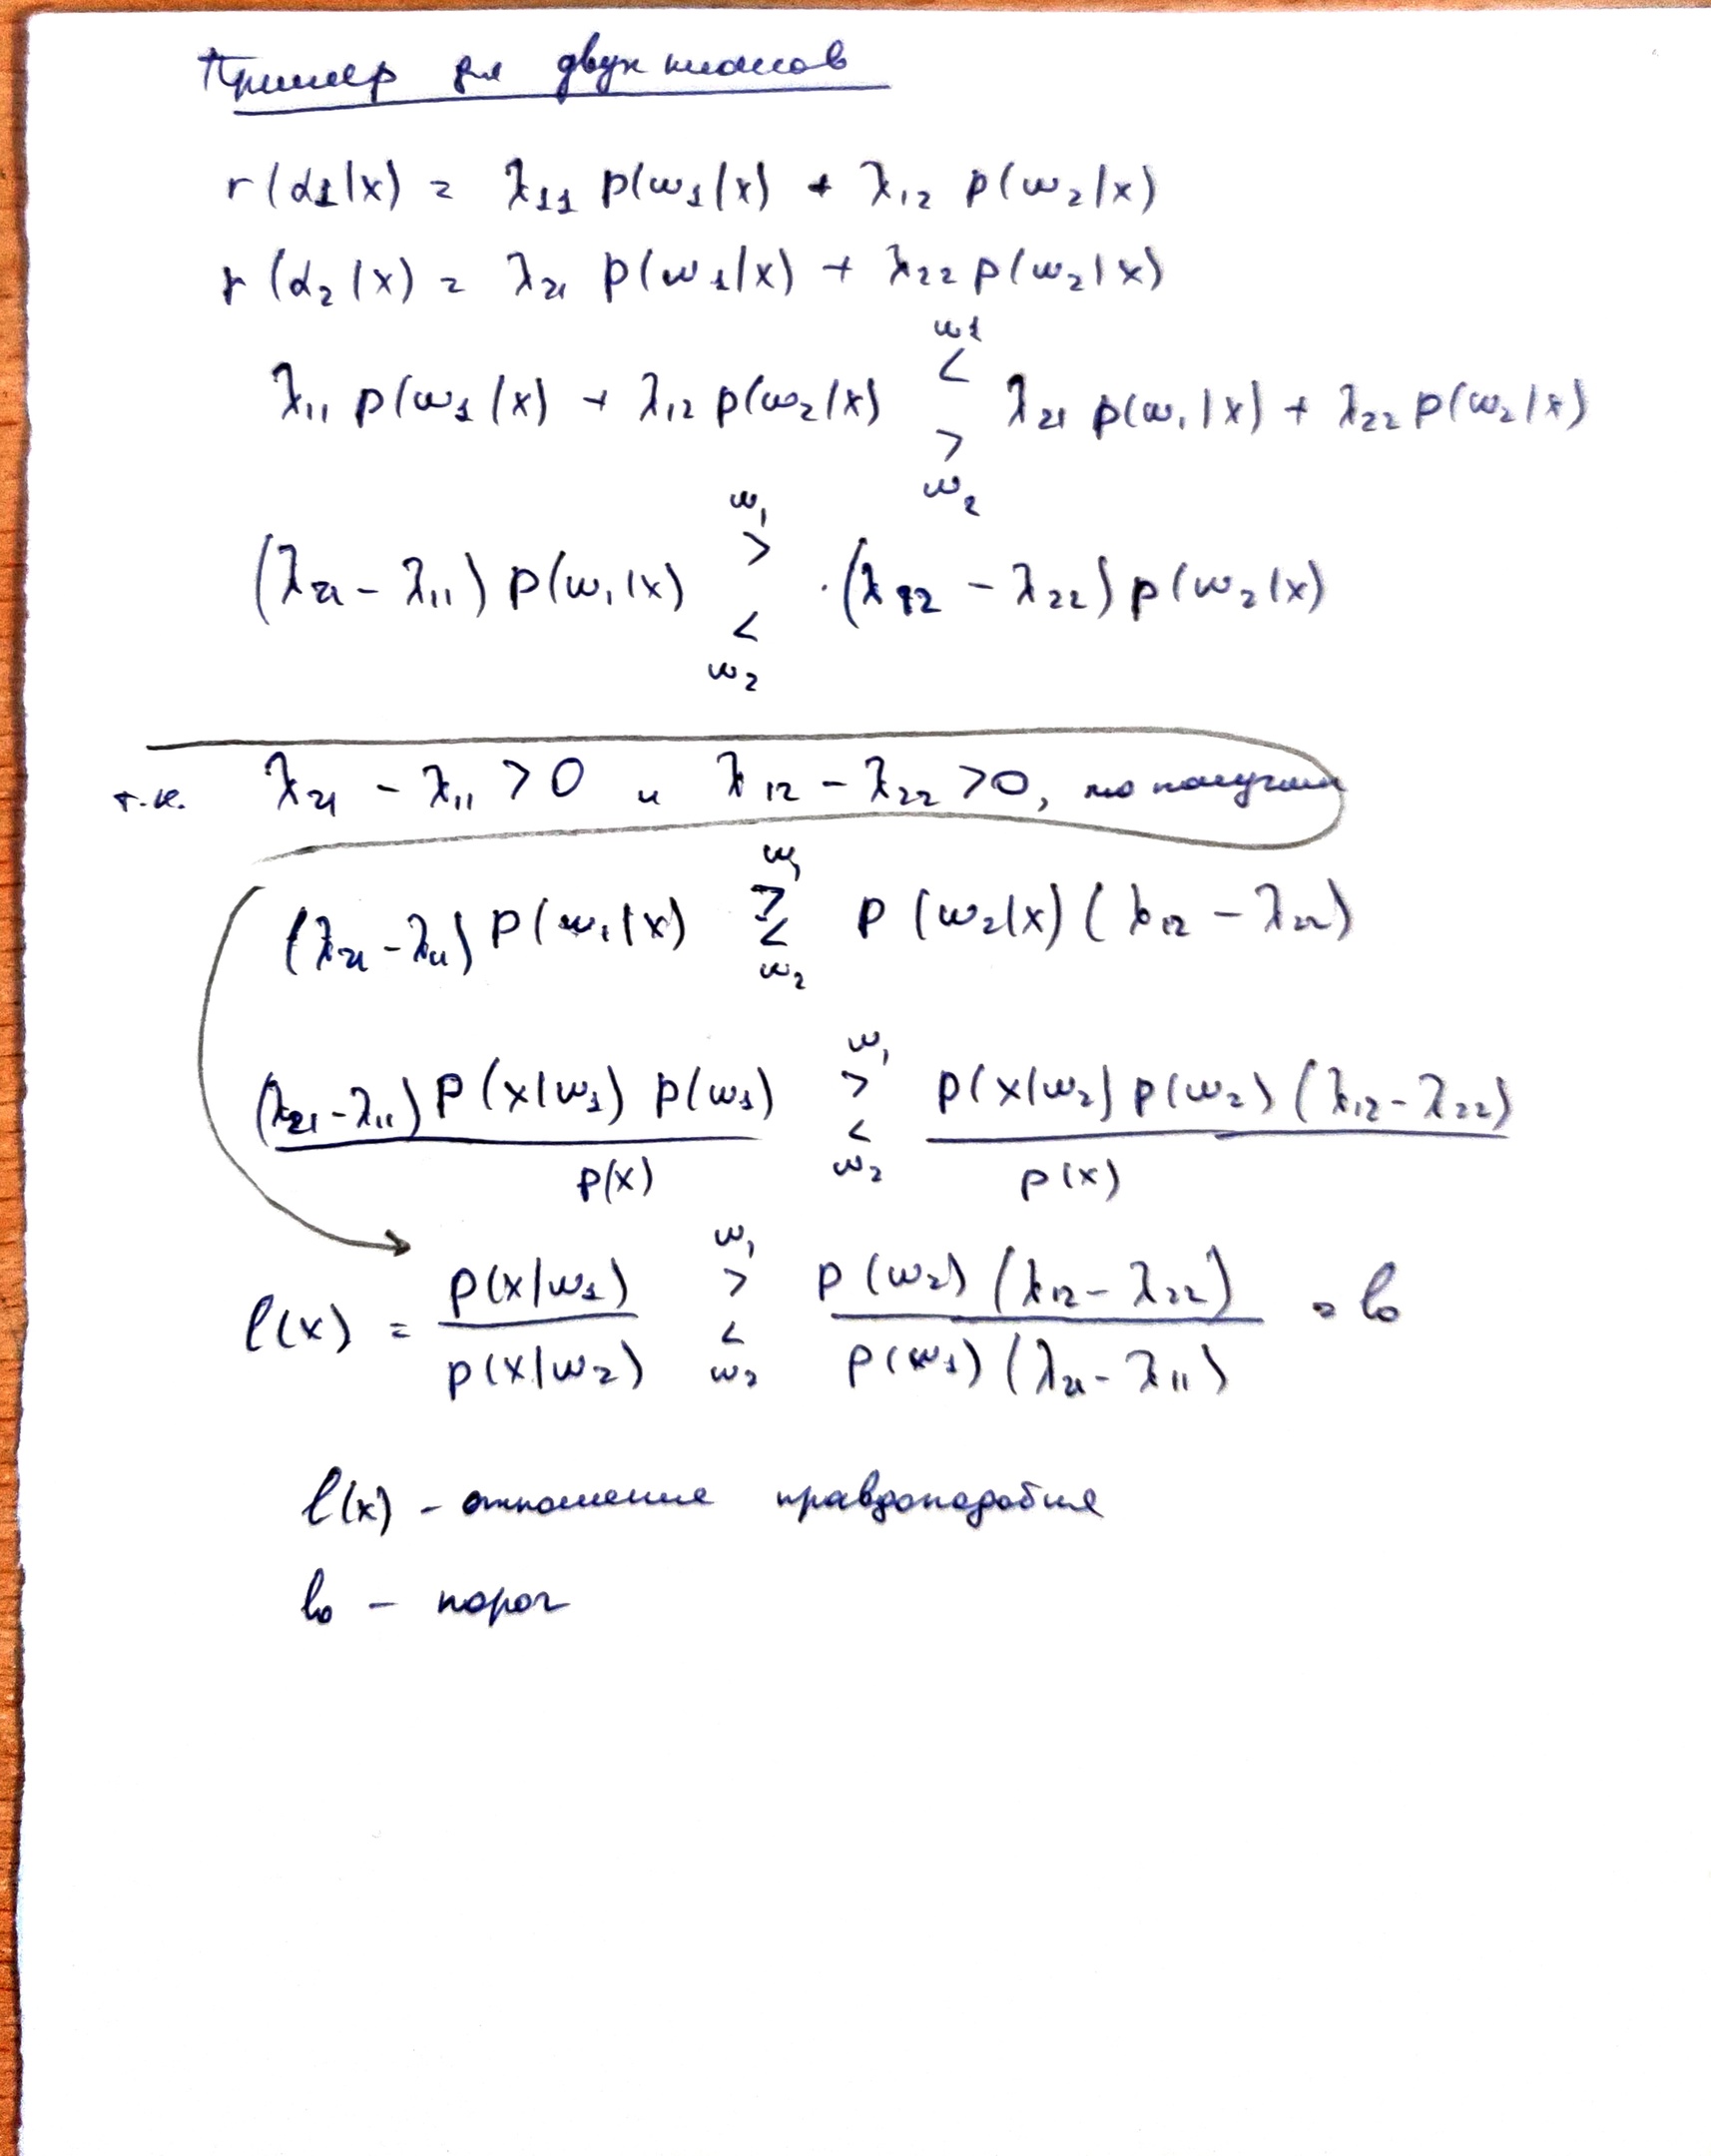 Пример для двух классов
r(α1|x) = λ11 p(ω1|x) + λ12 p(ω2|x)
r(α2|x) = λ21 p(ω1|x) + λ22 p(ω2|x)
ω1
<
λ11 p(ω1|x) + λ12 p(ω2|x) λ21 p(ω1|x) + λ22 p(ω2|x)
>
ω2
ω1
>
(λ21 - λ11) p(ω1|x) (λ12 - λ22) p(ω2|x)
<
ω2
т.к. λ21 - λ11 > 0 и λ12 - λ22 > 0, то получим
ω1
>
(λ21 - λ11) p(ω1|x) p(ω2|x) (λ12 - λ22)
<
ω2
ω1
(λ21 - λ11) p(x|ω1) p(ω1) > p(x|ω2) p(ω2) (λ12 - λ22)
<
p(x) ω2 p(x)
ω1
p(x|ω1) > p(ω2) (λ12 - λ22)
l(x) = = l0
<
p(x|ω2) ω2 p(ω1) (λ21 - λ11)
l(x) - отношение правдоподобия
l0 - порог